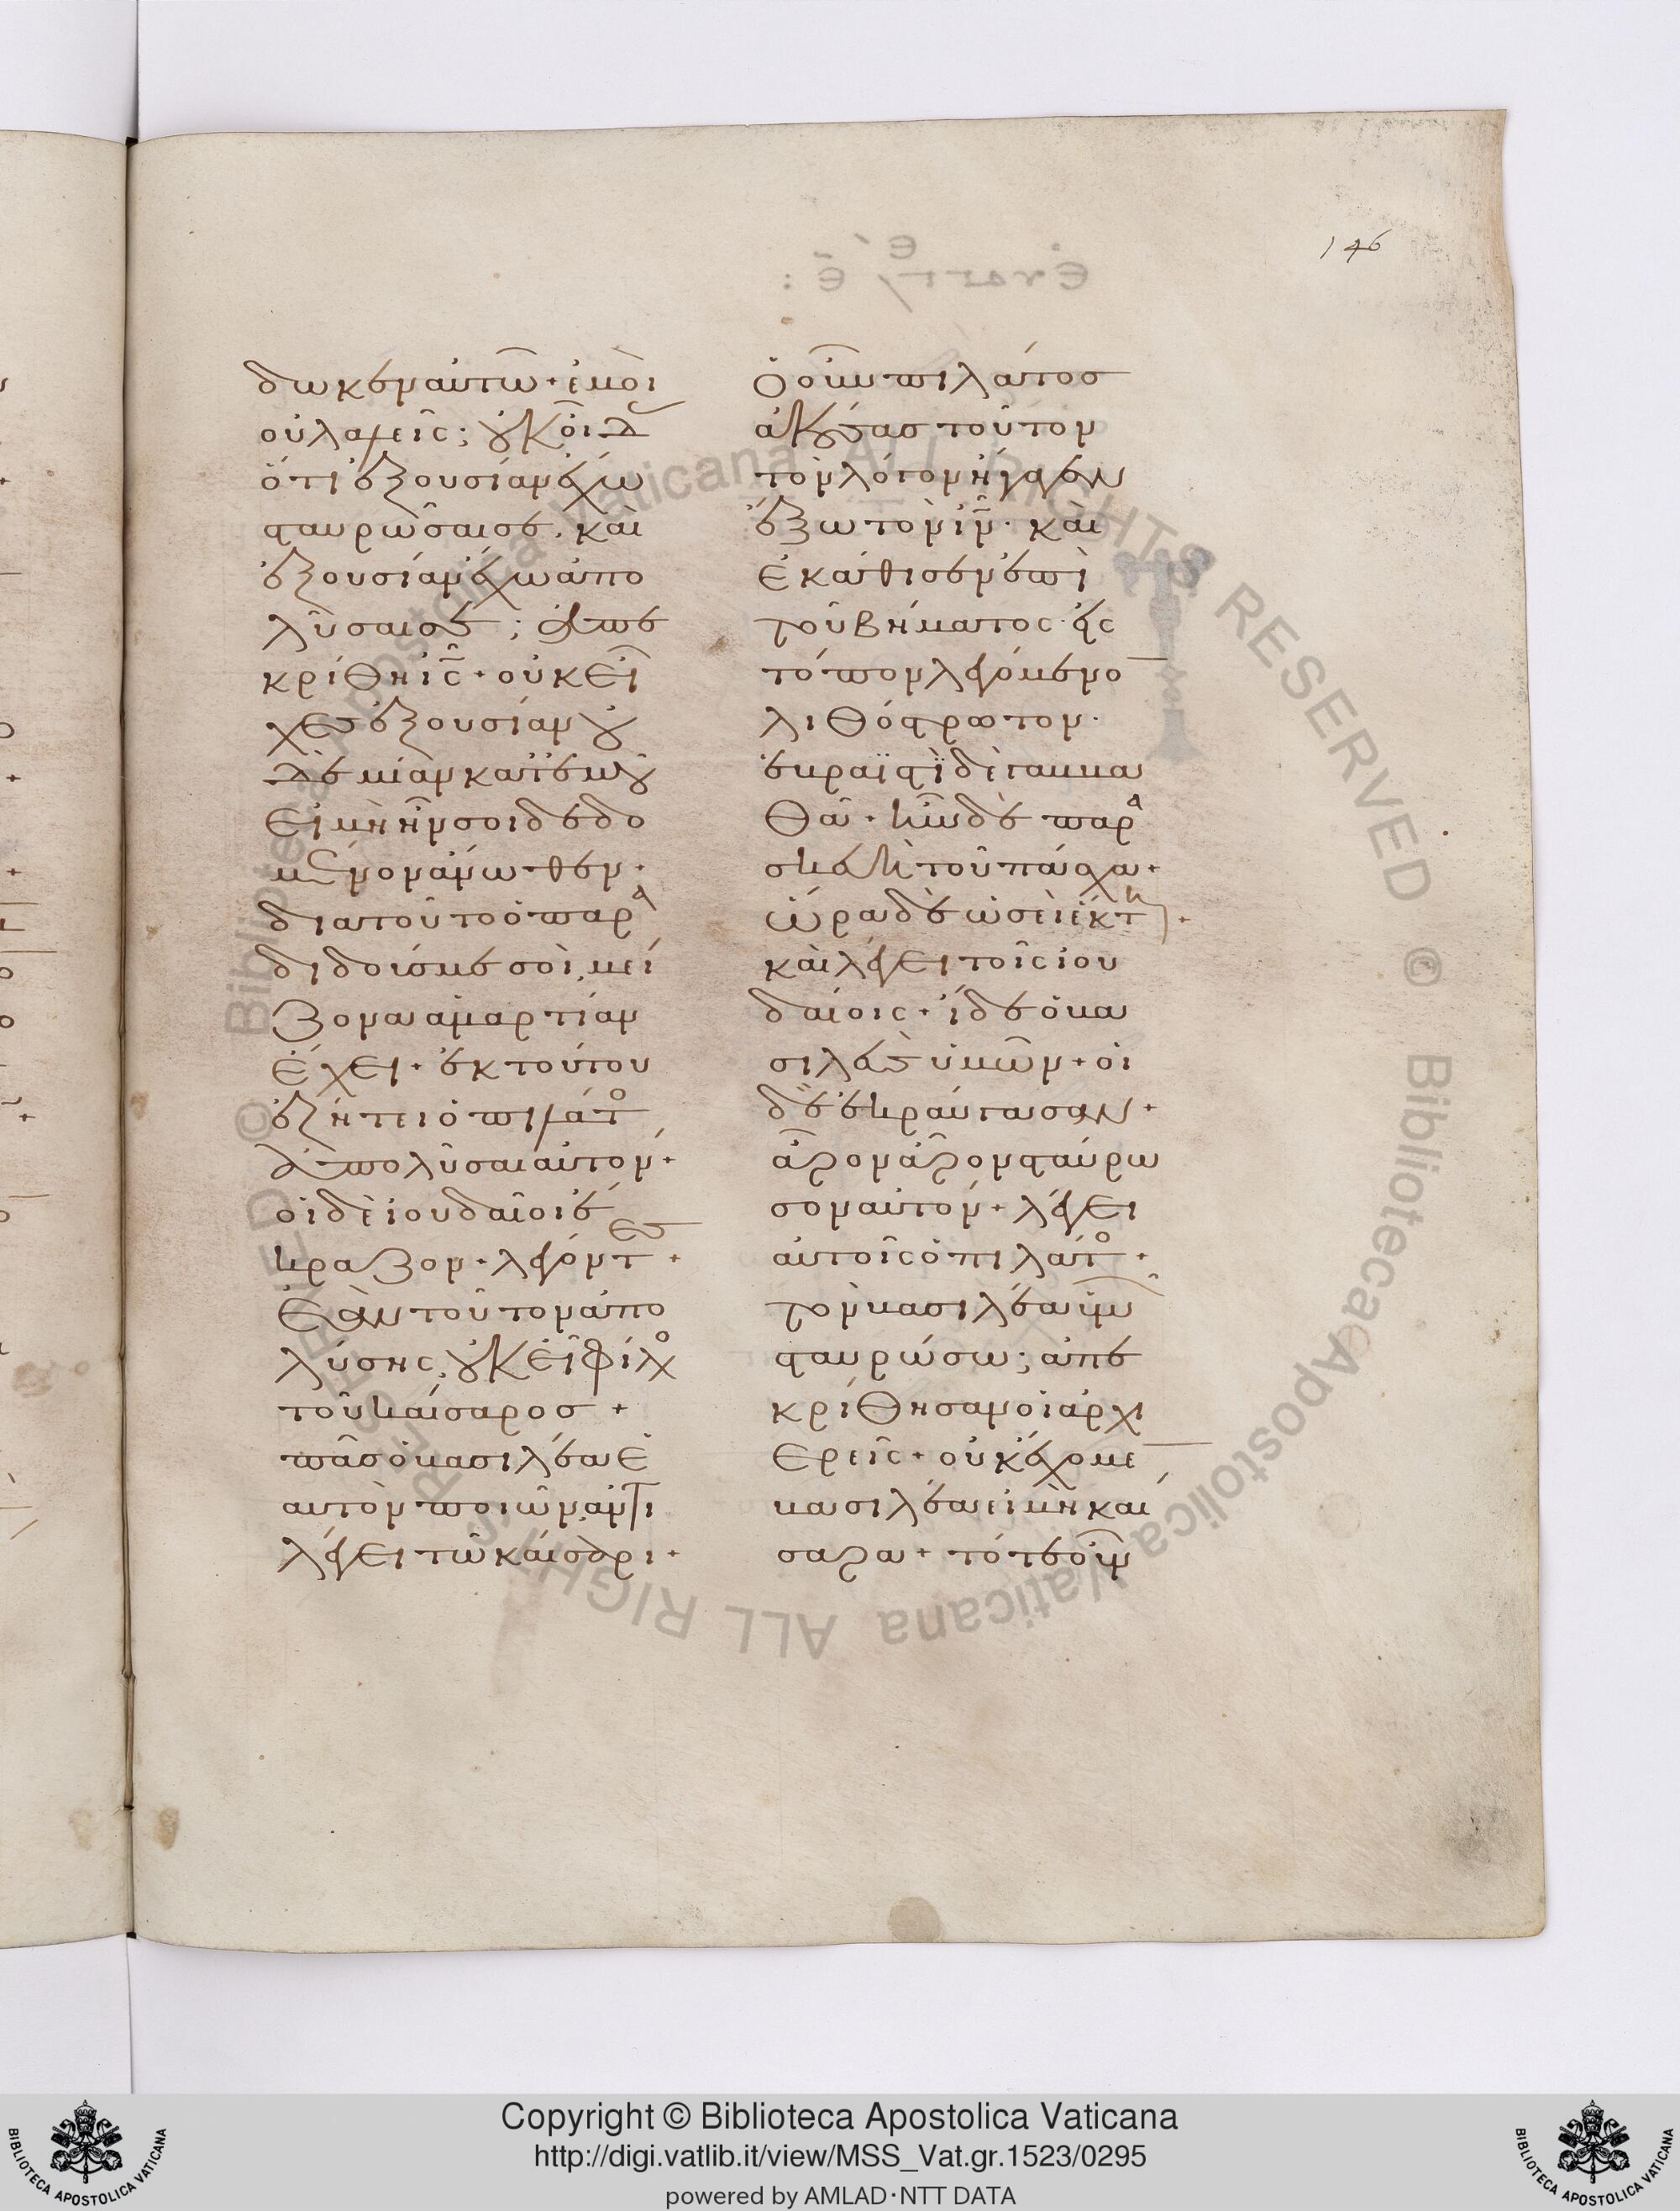 146
δωκεν αὐτῶ· ἐμοὶ
οὐ λαλεῖς; οὐκ οἶδ
ὅτι ἐξουσίαν ἔχω
σταυρῶσαι σε· καὶ
ἐξουσίαν ἔχω ἀπο
λῦσαι σε; ἀπε
κρίθη ἰς· οὐκ εἶ
χες ἐξουσίαν οὐ
δεμίαν κατ' ἐμοῦ
εἰ μὴ ἦν σοι δεδο
μένον ἄνωθεν·
διατοῦτο ὁ παρα
διδούς με σοὶ, μεί
ζονα ἁμαρτίαν
ἔχει· ἐκ τούτου
ἐζήτει ὁ πιλάτο
ἀπολῦσαι αὐτόν·
οἱ δὲ ἰουδαῖοι ἔ
κραζον· λέγοντες·
Ἐὰν τοῦτον ἀπο
λύσης, οὐκ εἶ φίλο
τοῦ καίσαρος·
πᾶς ὁ βασιλέα ἑ
αυτὸν ποιῶν, ἀντι
λέγει τῶ καίσαρι·
Ὁ οὖν πιλάτος
ἀκούσας τοῦτον
τὸν λόγον ἤγαγεν
ἔξω τὸν ἰν· καὶ
ἐκάθισεν ἐπὶ
τοῦ βήματος· εἰς
τόπον λεγόμενο
λιθόστρωτον·
ἑβραϊστὶ δὲ γαββα
θᾶ· ἦν δὲ παρα
σκευὴ τοῦ πάσχα·
ὥρα δὲ ὡσεὶ ἕκτη·
καὶ λέγει τοῖς ἰου
δαίοις· ἴδε ὁ βα
σιλεὺς ὑμῶν· οἱ
δὲ ἐκραύγασαν·
ἆρον ἆρον σταύρω
σον αὐτόν· λέγει
αὐτοῖς ὁ πιλάτο·
τὸν βασιλέα ὑμῶν
σταυρώσω; ἀπε
κρίθησαν οἱ ἀρχι
ερεῖς· οὐκ ἔχομε
βασιλέα εἰ μὴ καί
σαρα· τότε οὖν
Copyright © Biblioteca Apostolica Vaticana
http://digi.vatlib.it/view/MSS_Vat.gr.1523/0295
powered by AMLAD·NTT DATA